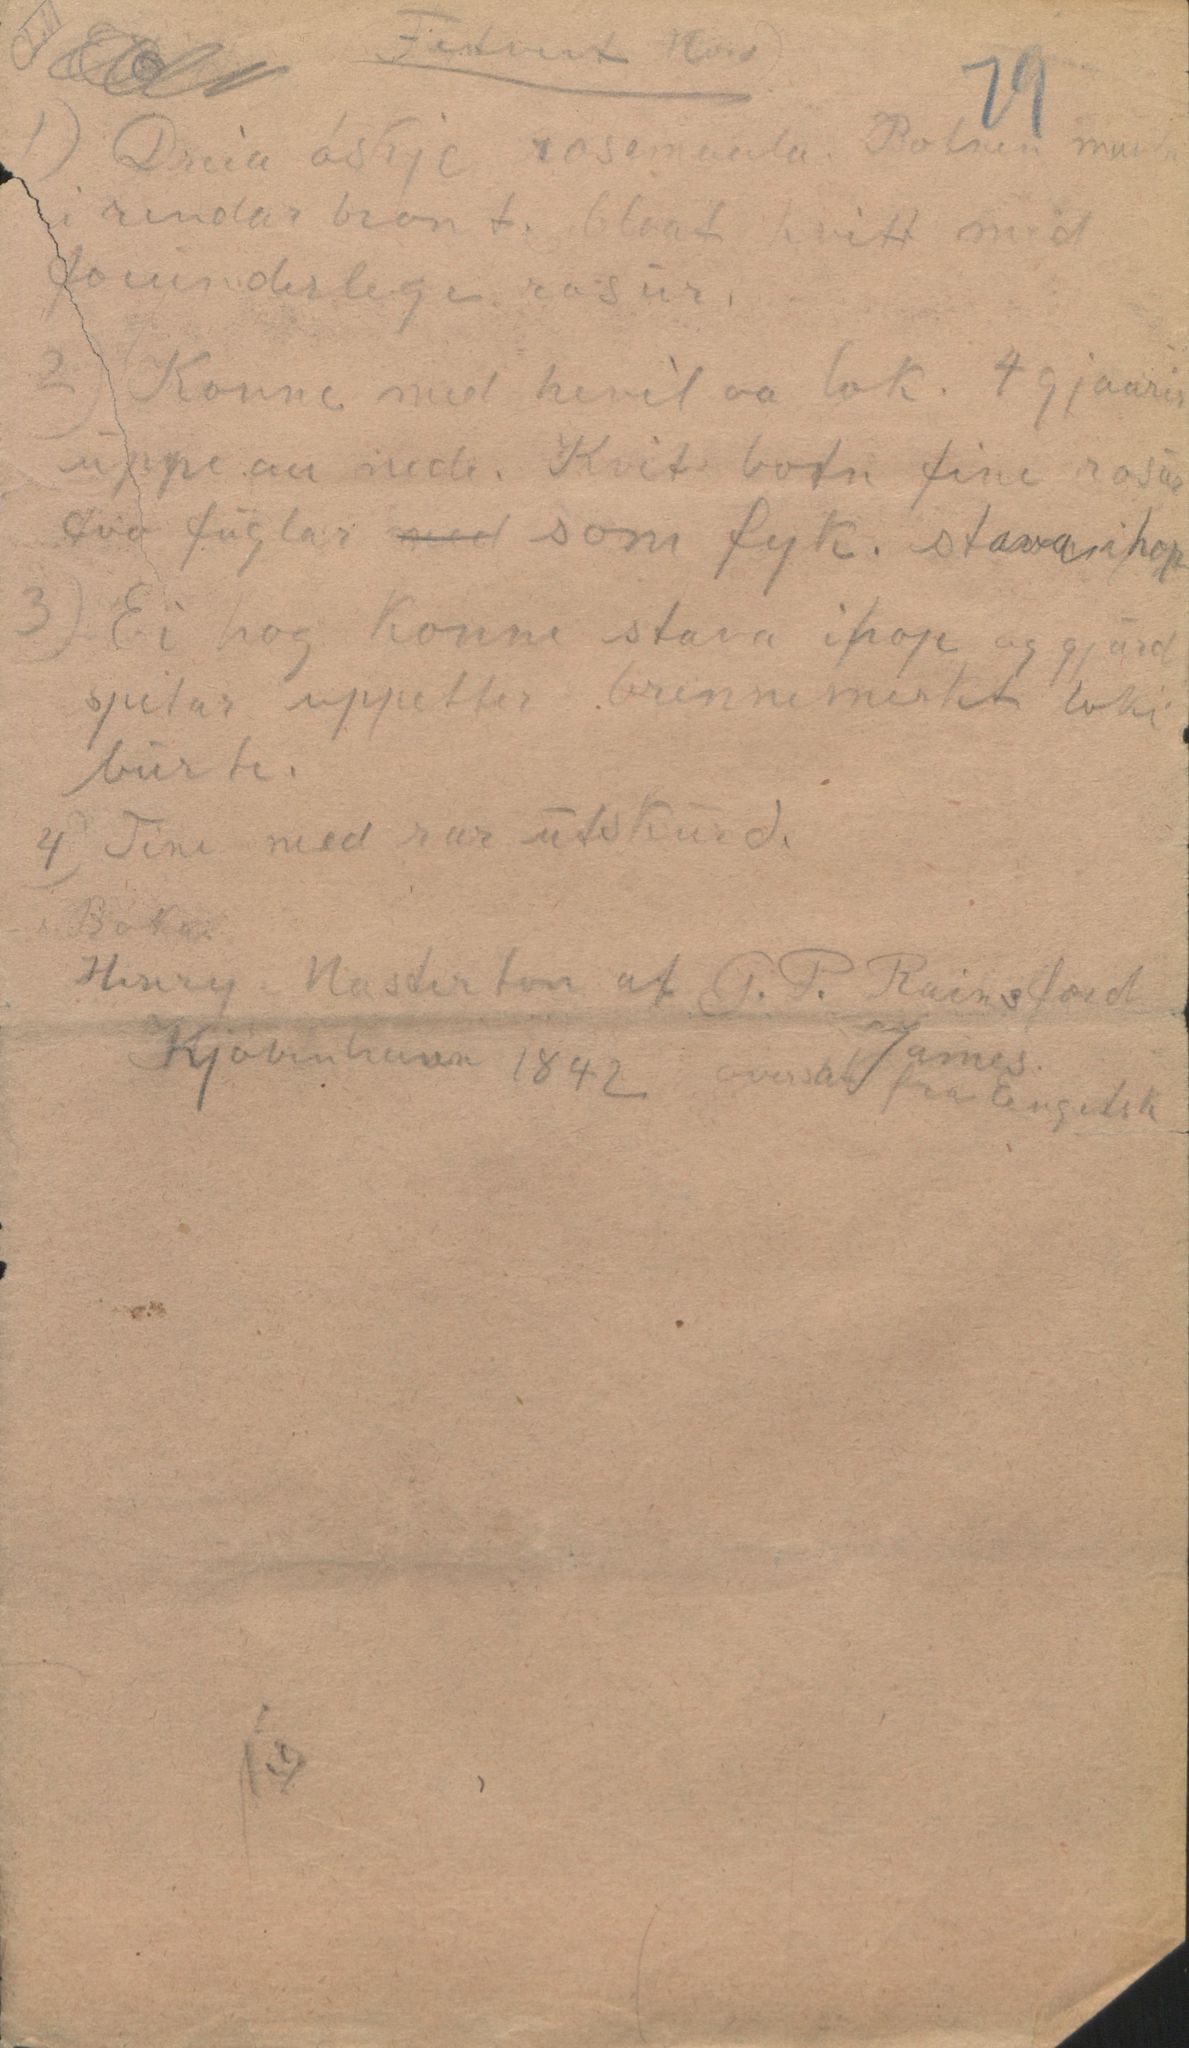 79
1) Dreia óskje rosemaala. Botnen
i rendar bront. blaat kvitt med
fouinderlege rosür.
2) Konne med hevil aa lok. 4 gjaarir
üppe au nede. Kvit botn fine rosür
tvo füglar med som fyk. stava ihop
3) Ei hog Konne stava ihop og gjürd
spitar uppetter brennemerkt loki
bürte.
4) Tine med rar ütskürd.
Bokar
Henry Masterton af G. P. Rainsford
James.
Kjøbenhavn 1842 oversat fra Engelsk